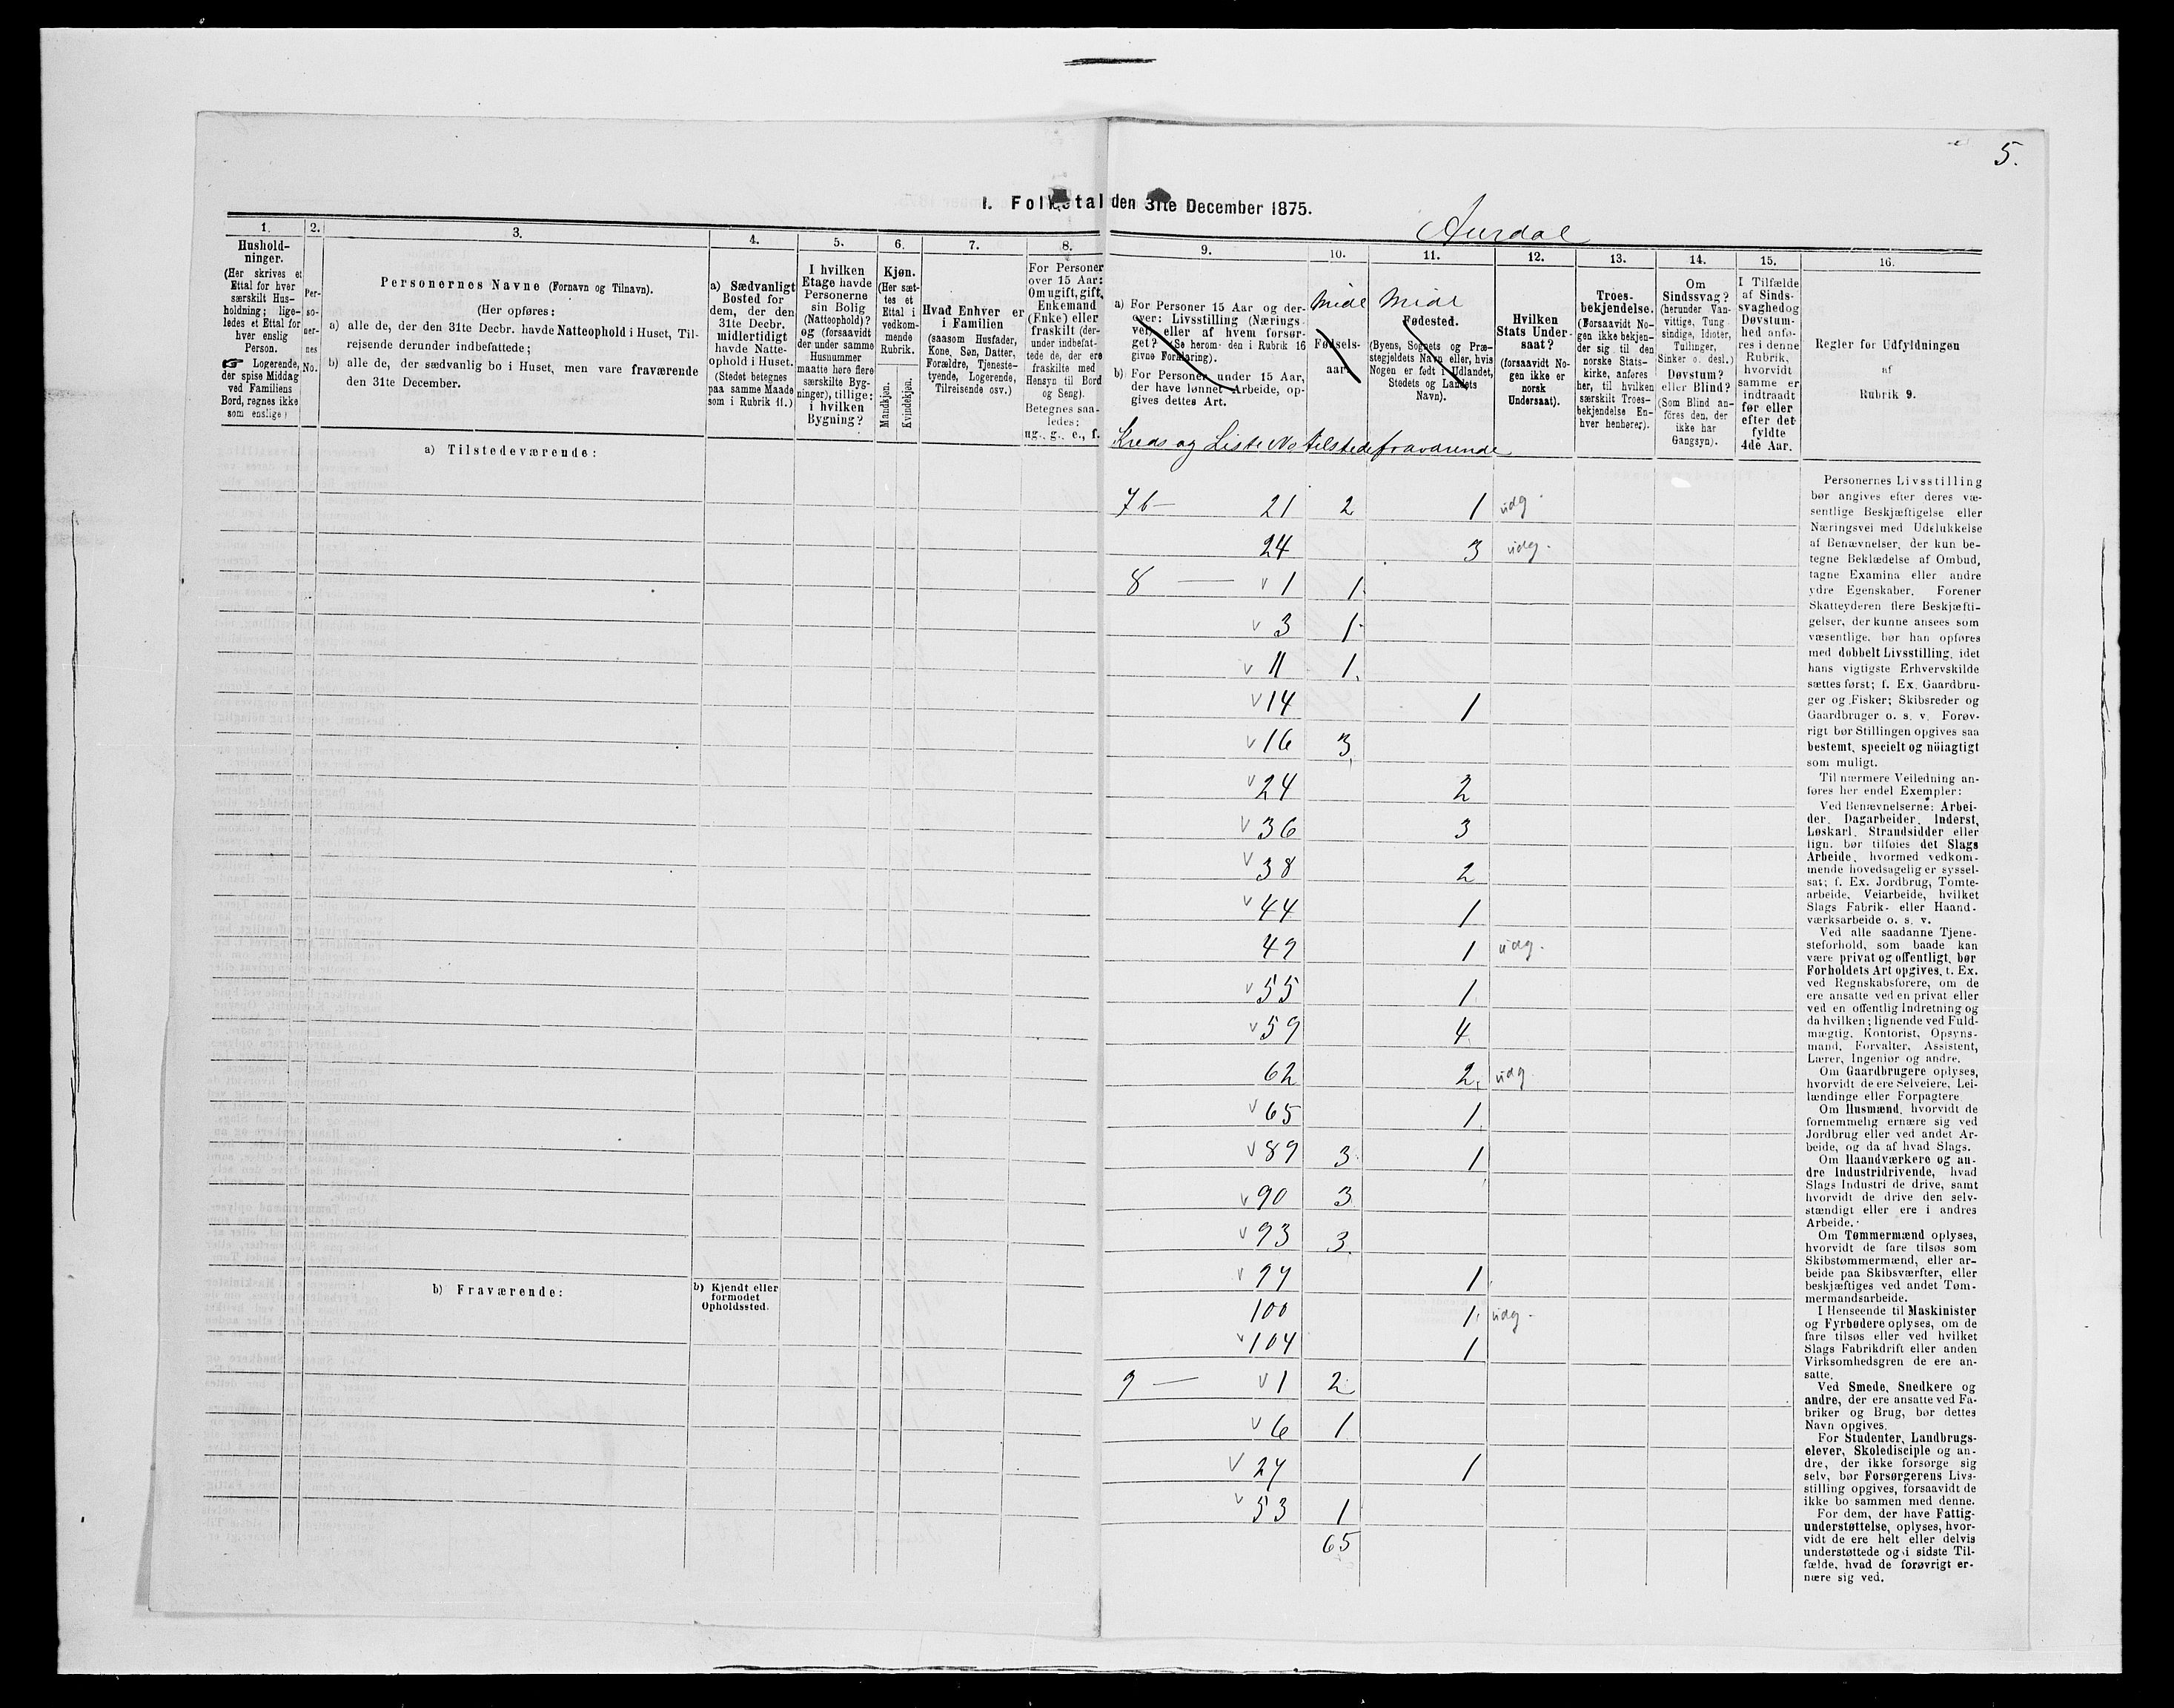 5.
I. Folketal den 31te December 1875.
Aurdal
1.
Hushold-
ninger.
(Her skrives et
Ettal for hver
særskilt Hus-
holdning; lige-
ledes et Ettal for
hver enslig
Person.
☞ Logerende,
der spise Middag
ved Familiens
Bord, regnes ikke
som enslige)
2.
Per-
so-
ner-
nes
No.
3.
Personernes Navne (Fornavn og Tilnavn).
(Her opføres:
a) alle de, der den 31te Decbr. havde Natteophold i Huset, Til-
rejsende derunder indbefattede;
b) alle de, der sædvanlig bo i Huset, men vare fraværende
den 31te December.
4.
a) Sædvanligt
Bosted for
dem, der den
31te Decbr.
midlertidigt
havde Natte-
ophold i Huset.
(Stedet betegnes
paa samme Maade
som i Rubrik 11.)
5.
I hvilken
Etage havde
Personerne
sin Bolig
(Natteophold)?
og (forsaavidt
der under samme
Husnummer
maatte høre flere
særskilte Byg-
ninger), tillige:
i hvilken
Bygning?
6.
Kjøn.
(Her sæt-
tes et
Ettal i
vedkom-
mende
Rubrik.
Mandkjøn.
Kvindekjøn.
7.
Hvad Enhver er
i Familien
(saasom Husfader,
Kone, Søn, Datter,
Forældre, Tjeneste-
tyende, Logerende,
Tilreisende osv.)
8.
For Personer
over 15 Aar:
Om ugift, gift,
Enkemand
(Enke) eller
fraskilt (der-
under indbefat-
tede de, der ere
fraskilte med
Hensyn til Bord
og Seng).
Betegnes saa-
ledes:
ug., g., e., f.
9.
a) For Personer 15 Aar og der-
over: Livsstilling (Nærings-
vei) eller af hvem forsør-
get? (Se herom den i Rubrik 16
givne Forklaring).
b) For Personer under 15 Aar,
der have lønnet Arbeide, op-
gives dettes Art.
10.
Midl
Fødsels-
aar.
11.
Midl
Fødested.
(Byens, Sognets og Præ-
stegjeldets Navn eller, hvis
Nogen er født i Udlandet,
Stedets og Landets
Navn).
12.
Hvilken
Stats Under-
saat?
(forsaavidt No-
gen ikke er
norsk
Undersaat).
13.
Troes-
bekjendelse.
(Forsaavidt No-
gen ikke bekjen-
der sig til den
norske Stats-
kirke, anføres
her, til hvilken
særskilt Troes-
bekjendelse En-
hver henhører).
14.
Om
Sindssvag?
(herunder Van-
vittige, Tung-
sindige, Idioter,
Tullinger,
Sinker o. desl.)
Døvstum?
eller Blind?
(Som Blind an-
føres den, der
ikke har
Gangsyn).
15.
I Tilfælde
af Sinds-
svaghed og
Døvstum-
hed anfø-
res i denne
Rubrik,
hvorvidt
samme er
indtraadt
før eller
efter det
fyldte
4de Aar.
16.
Regler for Udfyldningen
af
Rubrik 9.
Kreds og Liste No tilstede fraværende
a) Tilstedeværende:
7b — 21 2 1 udg.
24 3 udg.
8 — v 1 1.
v 3 1
v 11 1.
v 14 1
v 16 3
v 24 2
v 36 3
v 38 2
v 44 1
49 1 udg.
v 55 1
v 59 4
62 2 udg
v 65 1
v 89 3 1
v 90 3
v 93 3
v 97 1
b) Fraværende:
b) Kjendt eller
formodet
Opholdssted.
100 1 udg.
v 104 1
9 — v 1 2
v 6 1
v 27 1
v 53 1
65
Personernes Livsstilling
bør angives efter deres væ-
sentlige Beskjæftigelse eller
Næringsvei med Udelukkelse
af Benævnelser, der kun be-
tegne Beklædelse af Ombud,
tagne Examina eller andre
ydre Egenskaber. Forener
Skatteyderen flere Beskjæfti-
gelser, der kunne ansees som
væsentlige, bør han opføres
med dobbelt Livsstilling, idet
hans vigtigste Erhvervskilde
sættes først; f. Ex. Gaardbru-
ger og Fisker; Skibsreder og
Gaardbruger o. s. v. Forøv-
rigt bør Stillingen opgives saa
bestemt, specielt og nöiagtigt
som muligt.
Til nærmere Veiledning an-
føres her endel Exempler:
Ved Benævnelserne: Arbei-
der, Dagarbeider, Inderst,
Løskarl, Strandsidder eller
lign. bør tilføies det Slags
Arbeide, hvormed vedkom-
mende hovedsagelig er syssel-
sat; f. Ex. Jordbrug, Tomte-
arbeide, Veiarbeide, hvilket
Slags Fabrik- eller Haand-
værksarbeide o. s. v.
Ved alle saadanne Tjene-
steforhold, som baade kan
være privat og offentligt, bør
Forholdets Art opgives, t. Ex.
ved Regnskabsførere, om de
ere ansatte ved en privat eller
ved en offentlig Indretning og
da hvilken; lignende ved Fuld-
mægtig, Kontorist, Opsyns-
mand, Forvalter, Assistent,
Lærer, Ingeniør og andre.
Om Gaardbrugere oplyses,
hvorvidt de ere Selveiere, Lei-
lændinge eller Forpagtere.
Om Husmænd, hvorvidt de
fornemmelig ernære sig ved
Jordbrug eller ved andet Ar-
beide, og da af hvad Slags.
Om Haandværkere og an-
dre Industridrivende, hvad
Slags Industri de drive, samt
hvorvidt de drive den selv-
stændigt eller ere i andres
Arbeide.
Om Tømmermænd oplyses,
hvorvidt de fare tilsøs som
Skibstømmermænd, eller ar-
beide paa Skibsværfter, eller
beskjæftiges ved andet Tøm-
mermandsarbeide.
I Henseende til Maskinister
og Fyrbødere oplyses, om de
fare tilsøs eller ved hvilket
Slags Fabrikdrift eller anden
Virksomhedsgren de ere an-
satte.
Ved Smede, Snedkere og
andre, der ere ansatte ved Fa-
briker og Brug, bør dettes
Navn opgives.
For Studenter, Landbrugs-
elever, Skoledisciple og an-
dre, der ikke forsørge sig
selv, bør Forsørgerens Livs-
stilling opgives, forsaavidt de
ikke bo sammen med denne.
For dem, der have Fattig-
understøttelse, oplyses, hvor-
vidt de ere helt eller delvis
understøttede og i sidste Til-
fælde, hvad de forøvrigt er-
nære sig ved.